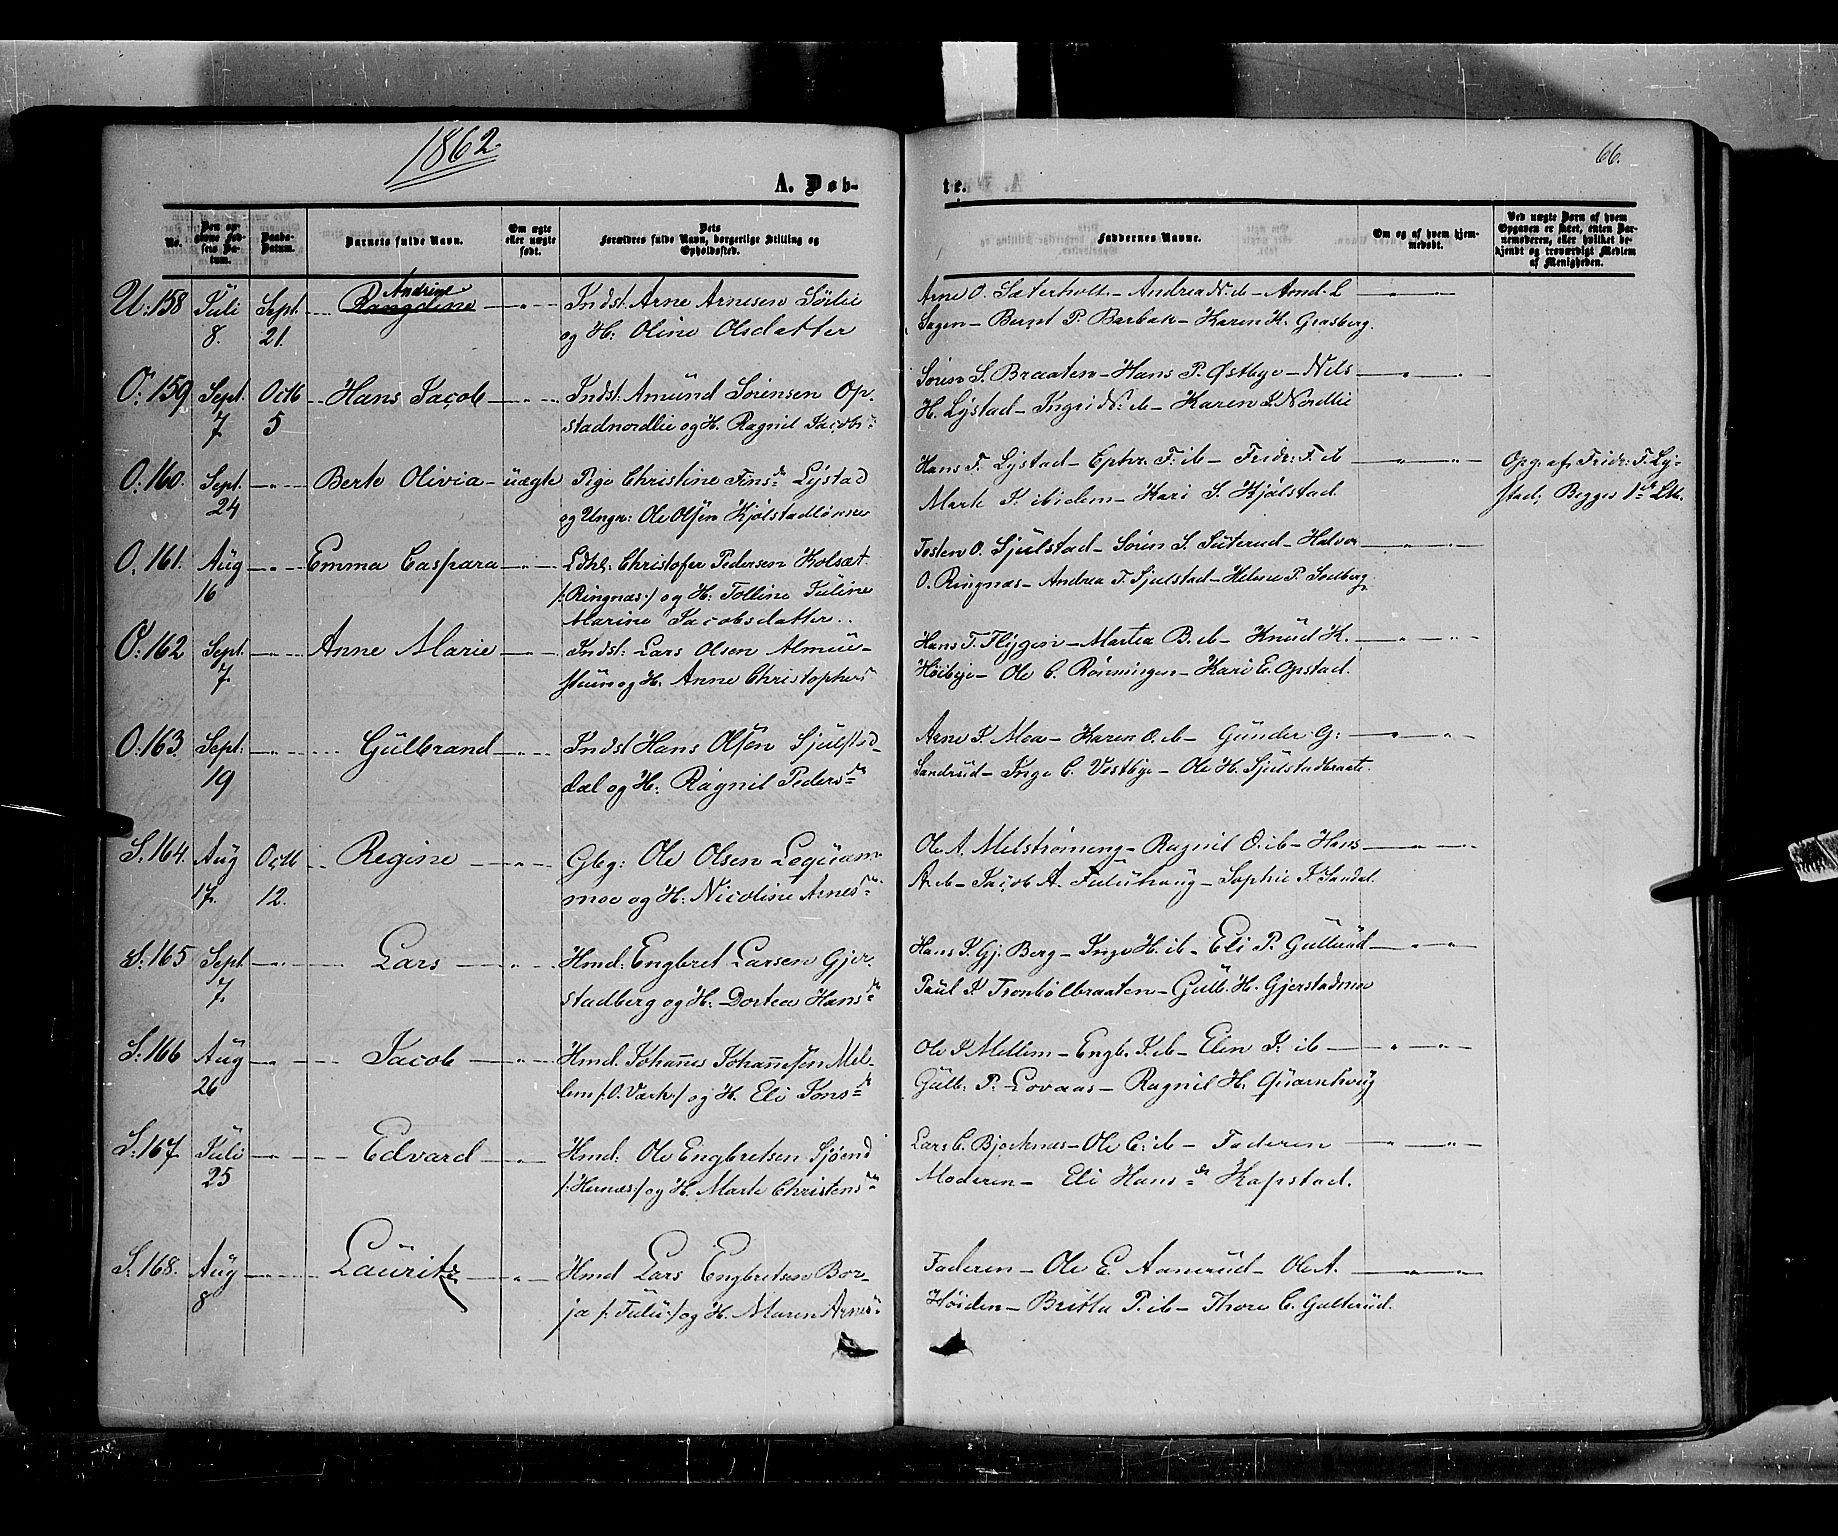 1862.
66.
A. Døb-
te.
No.
Den op-
givne Fød-
sels Da-
tum.
Daabs-
Datum.
Barnets fulde Navn.
Om ægte
eller uægte
født.
Dets
Forældres fulde Navn, borgerlige Stilling og
Opholdssted.
Faddernes Navne.
Om og af hvem hjem-
medøbt.
Ved uægte Børn af hvem
Opgaven er skeet, enten Bar-
nemoderen, eller hvilket be-
kjendt og troværdigt Medlem
af Menigheden.
U: 158 Juli 8. Sept. 21. Andrine
Indst. Arne Arnesen Sørlie
og H: Oline Olsdatter
Arne O. Sæterholt - Andrea N. ib - Amd. L
Sagen - Bernt P. Barbak - Karen H. Grasberg.
O: 159 Sept. 7. Octb 5 Hans Jacob
Indst. Amund Sørensen Op-
stadnordlie og H. Ragnil Jacobs
Søren S. Braaten - Hans P. Østbye - Nils
H. Lystad - Ingri N. ib - Karen L Nordlie
O: 160. Sept. 24 Berte Olivia - uægte
Pige Christine Finsd Lystad
og Ungk: Ole Olsen Kjølstadlønnen
Hans F. Lystad - Ephr. F. ib - Fridr: F. ib
Marte K. ibidem - Kari S. Kjølstad.
Opg. af Fridr: F. Ly-
stad, Begges 1ste Lm.
O. 161. Aug 16 Emma Caspara
Ldhl: Christofer Pedersen Kolsæt
/: Ringnæs :/ og H: Tolline Juline
Marine Jacobsdatter..
Tosten O. Sjulstad - Søren S. Suterud - Halvor
O. Ringnæs - Andrea T. Sjulstad - Helene P. Sodberg
O: 162 Sept. 7. Anne Marie
Indst: Lars Olsen Almeu-
stuen og H. Anne Christophers
Hans T. Flygen - Martea B. ib - Knud K.
Høibye - Ole C. Rønningen - Kari E. Opstad.
O: 163. Sept: 19 Gulbrand
Indst Hans Olsen Sjulstad-
dal og H: Ragnil Pedersd
Arne S. Moa - Karen O. ib - Gunder G:
Sandrud - Inge C. Vestbye - Ole H. Sjulstadbraate.
S. 164. Aug 17. Octb 12. Regine
Gbg: Ole Olsen Leqvam-
moe og H: Nicoline Arnesd
Ole A. Melstrømeng - Ragnil O. ib - Hans
A. ib - Jacob A. Fuluhaug - Sophie J. Sandal
S: 165 Sept 7. Lars
Hmd: Engbret Larsen Gjer-
stadberg og H: Dortea Hansd
Hans K. Gj. Berg - Inge H. ib - Eli P. Gullrud
Paul K. Trønbølbraaten - Gulb. H. Gjerstadmoen
S: 166 Aug 26 Jacob
Hmd. Johanes Johannesen Mel-
lem /: O. Værk :/ og H. Eli Jonsd
Ole J. Mellem - Engb. J. ib - Elen J. ib
Gulb: P. Lovaas - Ragnil H. Quarnhoug
S: 167. Juli 25 Edvard
Hmd: Ole Engbretsen Sjøend
/: Hernæs :/ og H. Marte Christens
Lars C. Bjerknæs - Ole C. ib - Faderen
Moderen - Eli Hansd Kapstad.
S: 168. Aug 8 Lauritz
Hmd Lars Engbretsen Bor-
ja /: Fulu :/ og H. Maren Arnes
Faderen - Ole E. Aamrud - Ole A.
Høiden - Britta P. ib - Thore C. Gullerud.